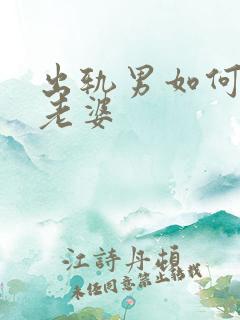 出轨男如何
老婆
江詩丹頓
未经同意禁止转载